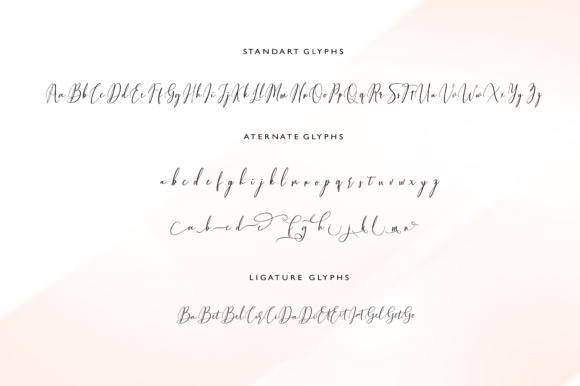 STANDART GLYPHS
Aa Bb Cc Dd Ee Ff Gg Hh Ii Jj Kk Ll Mm Nn Oo Pp Qq Rr Ss Tt Uu Vv Ww Xx Yy Zz
ATERNATE GLYPHS
a b c d e f g h i j k l m n o p q r s t u v w x y z
a b c d e f g h i j k l m n
LIGATURE GLYPHS